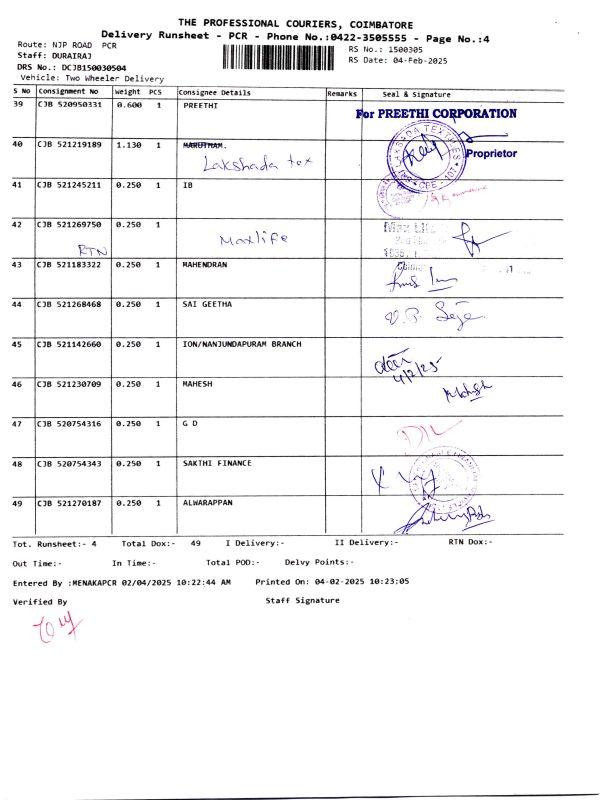 THE PROFESSIONAL COURIERS, COIMBATORE
Delivery Runsheet - PCR - Phone No.:0422-3505555 - Page No.:4
Route: NJP ROAD PCR
RS No.: 1500305
Staff: DURAIRAJ
RS Date: 04-Feb-2025
DRS No.: DCJB150030504
Vehicle: Two Wheeler Delivery
S No Consignment No Weight PCS Consignee Details Remarks Seal & Signature
39 CJB 520950331 0.600 1 PREETHI For PREETHI CORPORATION
Proprietor
40 CJB 521219189 1.130 1 MARUTHAM.
Lakshada tex
41 CJB 521245211 0.250 1 IB
42 CJB 521269750 0.250 1
RTN Maxlife
43 CJB 521183322 0.250 1 MAHENDRAN
44 CJB 521268468 0.250 1 SAI GEETHA
45 CJB 521142660 0.250 1 ION/NANJUNDAPURAM BRANCH
4/2/25
46 CJB 521230709 0.250 1 MAHESH
47 CJB 520754316 0.250 1 G D
48 CJB 520754343 0.250 1 SAKTHI FINANCE
49 CJB 521270187 0.250 1 ALWARAPPAN
Tot. Runsheet:- 4 Total Dox:- 49 I Delivery:- II Delivery:- RTN Dox:-
Out Time:- In Time:- Total POD:- Delvy Points:-
Entered By :MENAKAPCR 02/04/2025 10:22:44 AM Printed On: 04-02-2025 10:23:05
Verified By Staff Signature